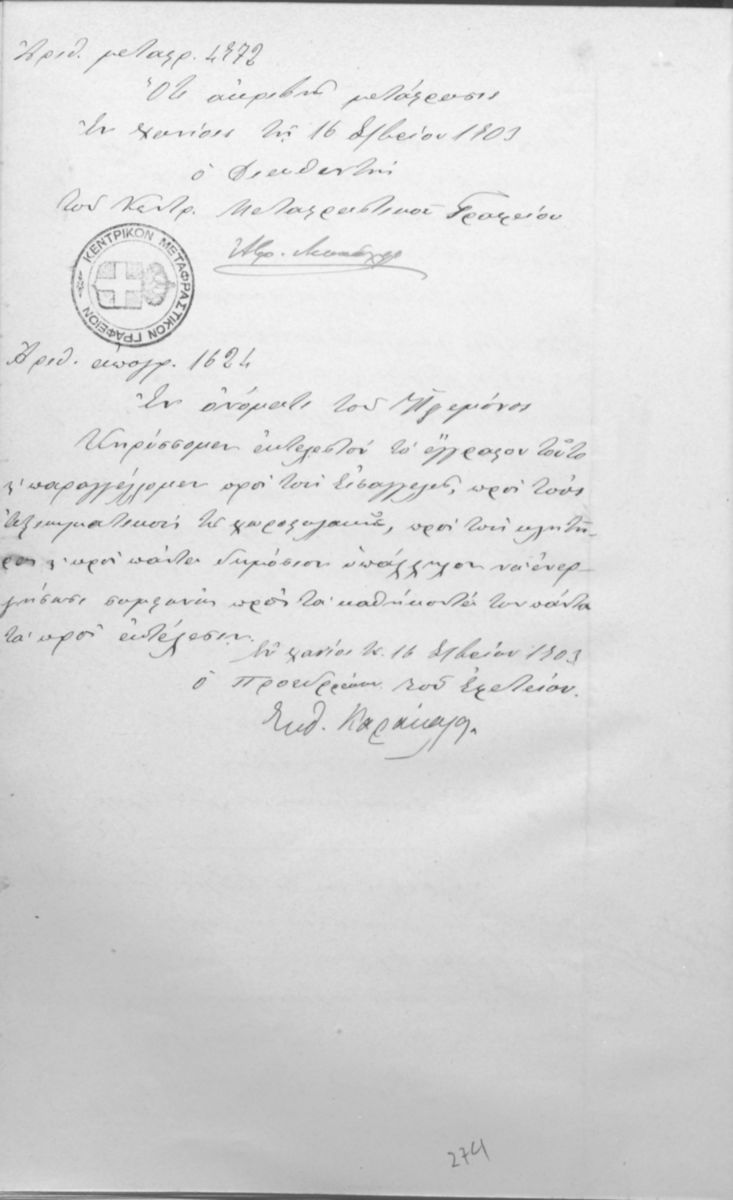 Ἀριθ. μεταφρ. 4972
Ὅτι ἀκριβὴς μετάφρασις
Ἐν Χανίοις τῇ 16 1903
ὁ Διευθυντὴς
τοῦ Κεντρ. Μεταφραστικοῦ Γραφείου
ΚΕΝΤΡΙΚΟΝ ΜΕΤΑΦΡΑΣΤΙΚΟΝ ΓΡΑΦΕΙΟΝ
Ἀριθ. ἀπογρ. 1624
Ἐν ὀνόματι τοῦ Ἡγεμόνος
Κηρύσσομεν ἐκτελεστὸν τὸ ἔγγραφον τοῦτο
κ' παραγγέλλομεν πρὸς τοὺς Εἰσαγγελεῖς, πρὸς τοὺς
ἀξιωματικοὺς τῆς χωροφυλακῆς, πρὸς τοὺς κλητῆ-
ρας κ' πρὸς πάντα δημόσιον ὑπάλληλον νὰ ἐνερ-
γήσωσι συμφώνως πρὸς τὰ καθήκοντά των πάντα
τὰ πρὸς ἐκτέλεσιν.
Ἐν Χανίοις τῇ 16 1903
ὁ Προεδρεύων τοῦ Ἐφετείου.
274